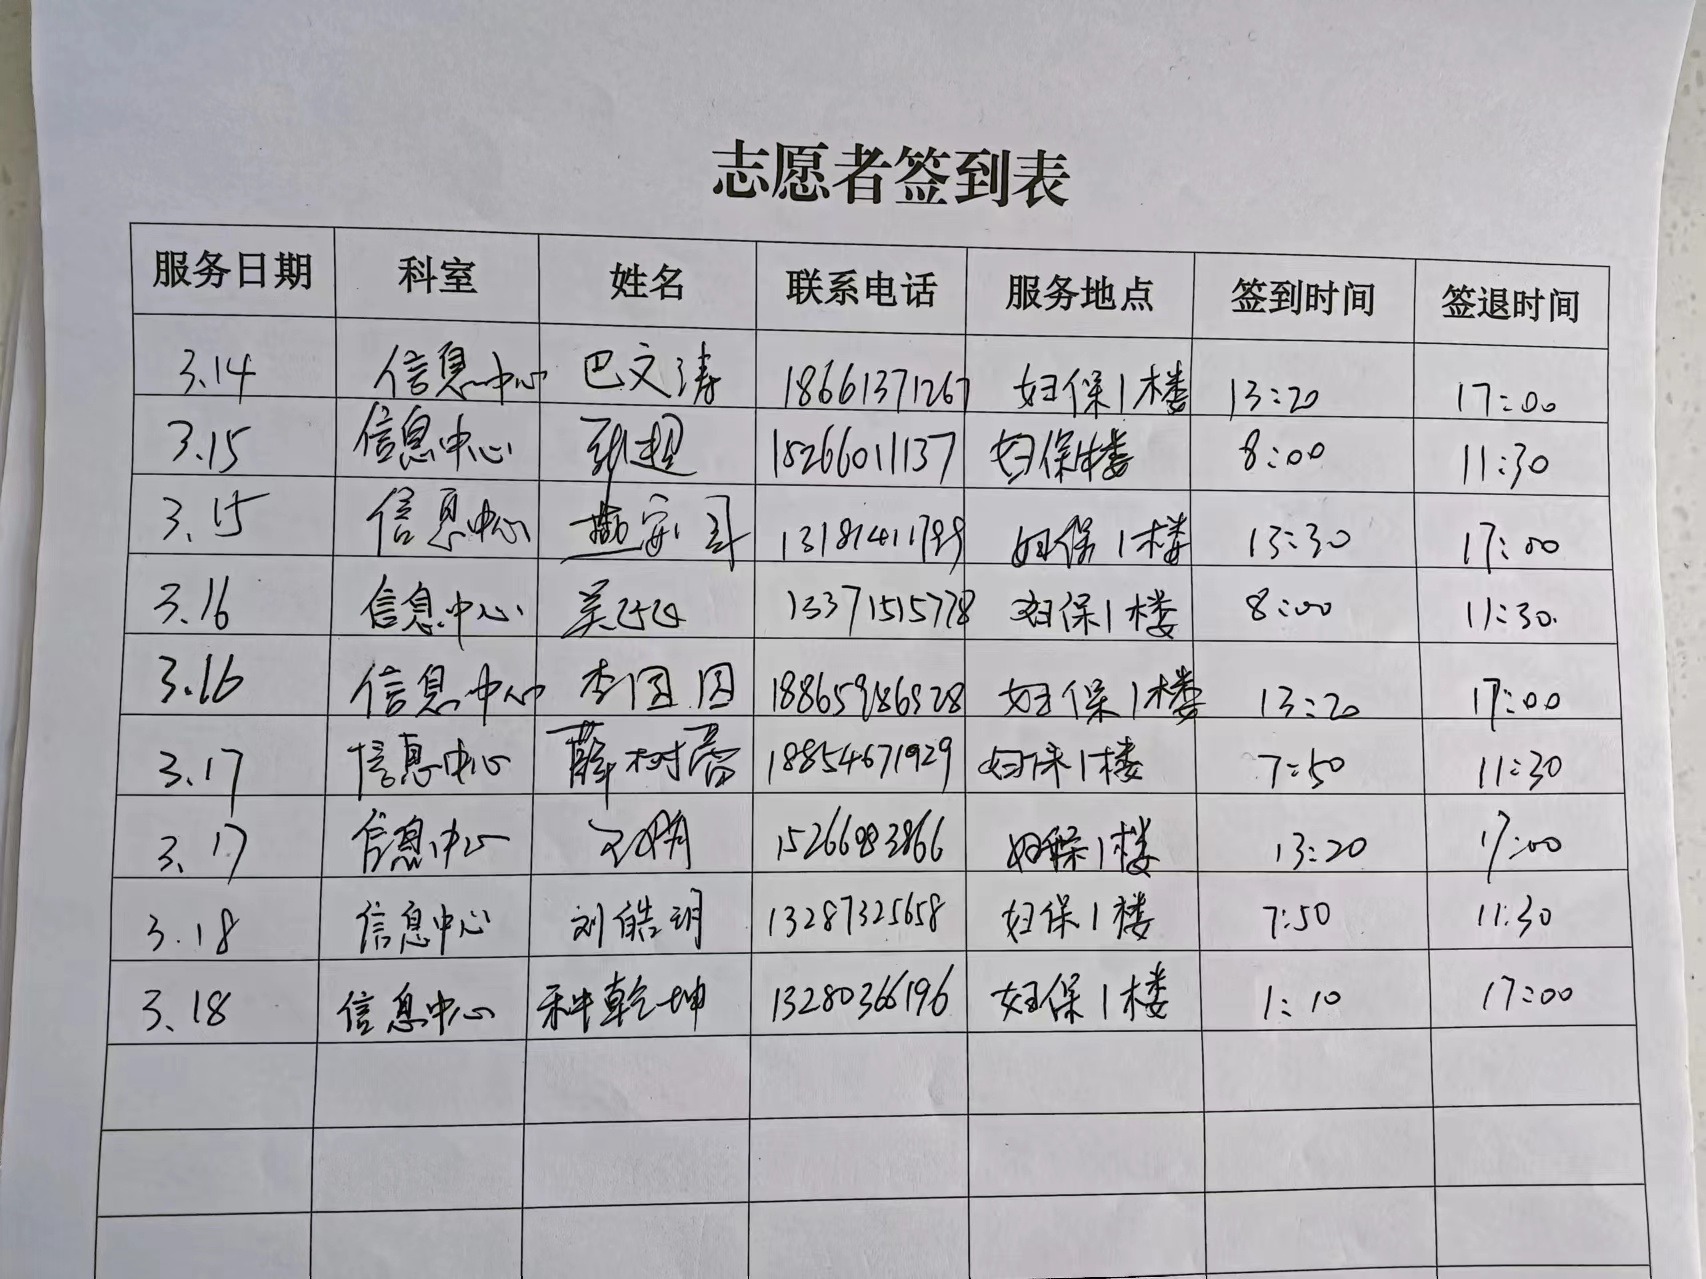 志愿者签到表
服务日期 科室 姓名 联系电话 服务地点 签到时间 签退时间
3.14 信息中心 巴文涛 18661371267 妇保1楼 13:20 17:00
3.15 信息中心 18266011137 妇保1楼 8:00 11:30
3.15 信息中心 妇保1楼 13:30 17:00
3.16 信息中心 13371515778 妇保1楼 8:00 11:30.
3.16 信息中心 李团团 妇保1楼 13:20 17:00
3.17 信息中心 薛树蕾 18854671929 妇保1楼 7:50 11:30
3.17 信息中心 妇保1楼 13:20 17:00
3.18 信息中心 刘皓玥 13287325658 妇保1楼 7:50 11:30
3.18 信息中心 乾坤 13280366196 妇保1楼 1:10 17:00